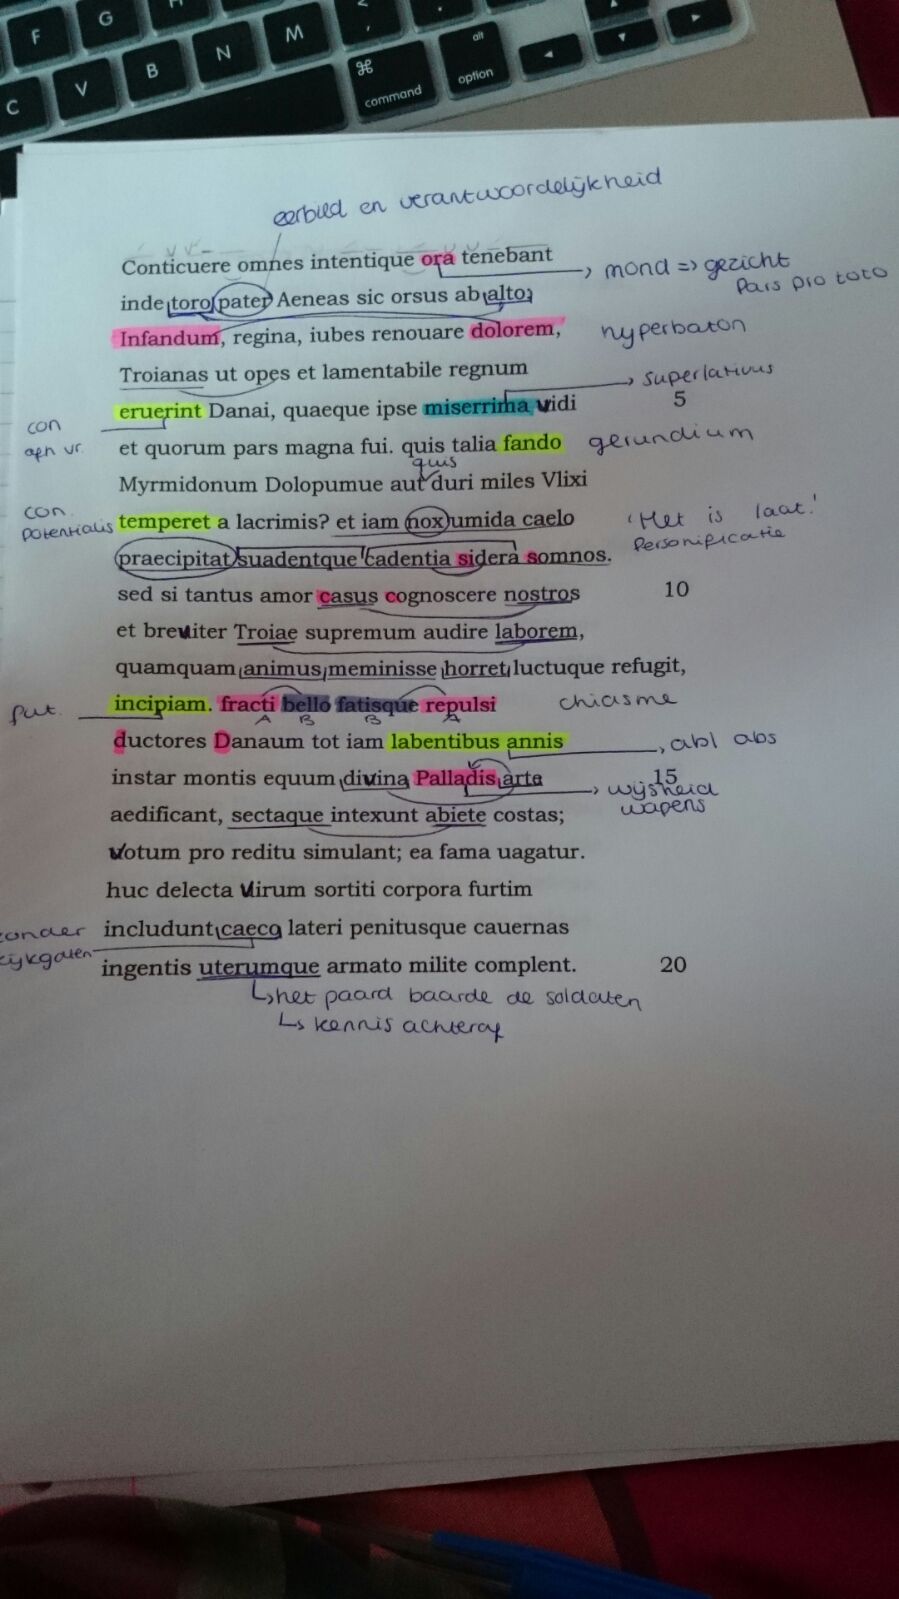 F G H < , .
C V B N M ⌘ command alt option ◄ ▲ ▼ ►
eerbied en verantwoordelijkheid
Conticuere omnes intentique ora tenebant
mond => gezicht
Pars pro toto
inde toro pater Aeneas sic orsus ab alto:
Infandum, regina, iubes renouare dolorem, hyperbaton
Troianas ut opes et lamentabile regnum superlativus
con eruerint Danai, quaeque ipse miserrima vidi 5
afh vr. et quorum pars magna fui. quis talia fando gerundium
quis
Myrmidonum Dolopumue aut duri miles Vlixi
con. potentialis temperet a lacrimis? et iam nox umida caelo 'Het is laat!'
Personificatie
praecipitat suadentque cadentia sidera somnos.
sed si tantus amor casus cognoscere nostros 10
et breviter Troiae supremum audire laborem,
quamquam animus meminisse horret luctuque refugit,
fut. incipiam. fracti bello fatisque repulsi chiasme
A B B A
ductores Danaum tot iam labentibus annis abl abs
instar montis equum divina Palladis arte 15
wijsheid
wapens
aedificant, sectaque intexunt abiete costas;
Votum pro reditu simulant; ea fama uagatur.
huc delecta Virum sortiti corpora furtim
zonder includunt caeco lateri penitusque cauernas
kijkgaten ingentis uterumque armato milite complent. 20
↳ het paard baarde de soldaten
↳ kennis achteraf